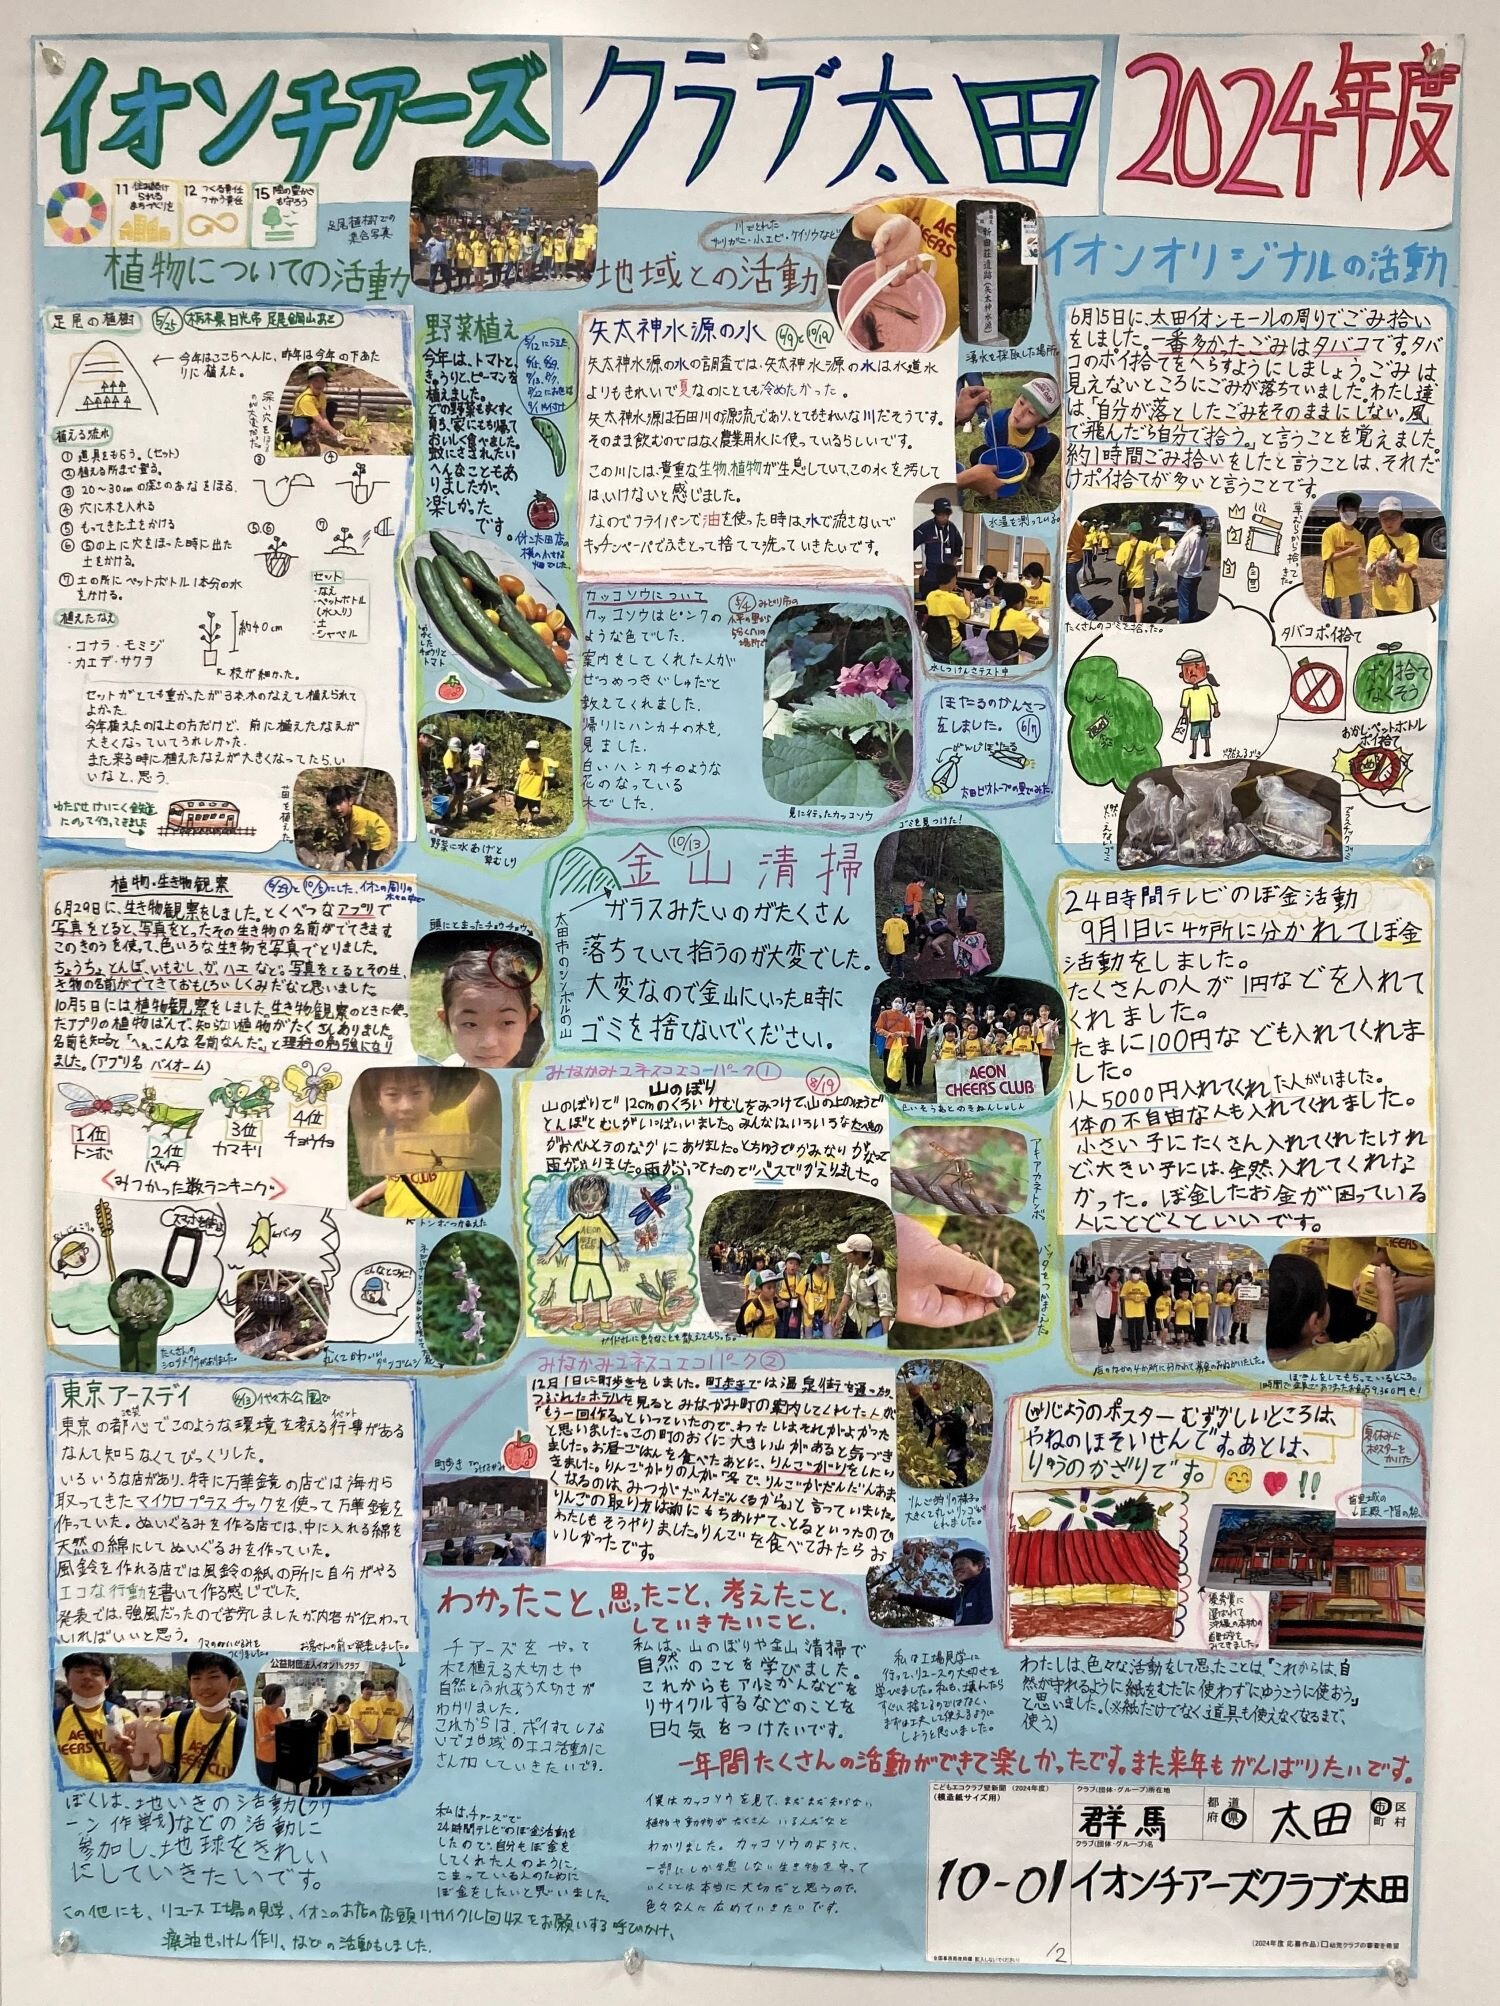 イオンチアーズ クラブ太田 2024年度
11 住み続けられるまちづくりを
12 つくる責任 つかう責任
15 陸の豊かさも守ろう
足尾植樹での
集合写真
植物についての活動
足尾の植樹 5/25 栃木県日光市 足尾銅山あと
今年はここらへんに、昨年は今年の下あた
りに植えた。
植える流れ
① 道具をもらう。(セット)
② 植える所まで登る。
③ 20~30cmの深さのあなをほる。
④ 穴に木を入れる
⑤ もってきた土をかける
⑥ ⑤の上に穴をほった時に出た
土をかける。
⑦ 土の所にペットボトル1本分の水
をかける。
③ ④
⑤⑥ ⑦
セット
・なえ
・ペットボトル
(水入り)
・土
・シャベル
植えたなえ
・コナラ・モミジ
・カエデ・サクラ
約40cm
枝が細かった。
セットがとても重かったが3本木のなえて植えられて
よかった。
今年植えたのは上の方だけど、前に植えたなえが
大きくなっていてうれしかった。
また来る時に植えたなえが大きくなってたらい
いなと、思う。
わたらせけいこく鉄道
にのって行ってきました
苗を植えた
野菜植え
今年は、トマトと、
きゅうりと、ピーマンを
植えました。
どの野菜もすくすく
育ち、家にもち帰って
おいしく食べました。
蚊にさされたい
へんなこともあ
りましたが、
楽しかった
です。
野菜に水あげと
草むしり
地域との活動
川でとれた
ザリガニ・小エビ・ケイソウなど
矢太神水源の水 6/9と10/19
矢太神水源の水の調査では、矢太神水源の水は水道水
よりもきれいで夏なのにとても冷めたかった。
矢太神水源は石田川の源流であり、とてもきれいな川だそうです。
そのまま飲むのではなく農業用水に使っているらしいです。
この川には、貴重な生物、植物が生息していて、この水を汚して
はいけないと感じました。
なのでフライパンで油を使った時は、水で流さないで
キッチンペーパーでふきとって捨てて洗っていきたいです。
新田荘遺跡(矢太神水源)
湧水を採取した場所。
水温を測っている。
水しつけんさテスト中
カッコソウについて
カッコソウはピンクの
ような色でした。
案内をしてくれた人が
ぜつめつきぐしゅだと
教えてくれました。
帰りにハンカチの木を
見ました。
白いハンカチのような
花のなっている
木でした。
見に行ったカッコソウ
ほたるのかんさつ
をしました。 6/7
太田ビオトープの里でみた。
イオンオリジナルの活動
6月15日に、太田イオンモールの周りでごみ拾い
をしました。一番多かったごみはタバコです。タバ
コのポイ捨てをへらすようにしましょう。ごみは
見えないところにごみが落ちていました。わたし達
は、「自分が落としたごみをそのままにしない。風
で飛んだら自分で拾う。」と言うことを覚えました。
約1時間ごみ拾いをしたと言うことは、それだ
けポイ捨てが多いと言うことです。
たくさんのゴミを拾った。
草むらから拾ってきた。
タバコポイ捨て
ポイ捨て
なくそう
おかし・ペットボトル
ポイ捨て
燃えるゴミ
燃えないゴミ
プラスチックゴミ
植物・生き物観察
6月29日に、生き物観察をしました。とくべつなアプリで
写真をとると、写真をとったその生き物の名前がでてきます。
このきのうを使って、色いろな生き物を写真でとりました。
ちょうちょ、とんぼ、いもむし、が、ハエなど。写真をとるとその生
き物の名前がでてきておもしろいしくみだなと思いました。
10月5日には植物観察をしました。生き物観察のときに使っ
たアプリの植物ばんで、知らない植物がたくさんありました。
名前を知ると「へぇ、こんな名前なんだ。」と理科の勉強になり
ました。(アプリ名 バイオーム)
1位
トンボ
2位
バッタ
3位
カマキリ
4位
チョウチョ
<みつかった数ランキング>
バッタ
こんなところに!
頭にとまったチョウチョウ
トンボつかまえた
たくさんの
シロツメクサがありました。
丸くてかわいい
ダンゴムシ
金山清掃 10/13
太田市のシンボルの山
ガラスみたいのがたくさん
落ちていて拾うのが大変でした。
大変なので金山にいった時に
ゴミを捨てないでください。
ゴミを見つけた!
AEON
CHEERS CLUB
せいそうあとのきねんしゃしん
みなかみユネスコエコーパーク①
山のぼり 8/19
山のぼりで12cmのくろいけむしをみつけて、山の上のほうで
とんぼとむしがいっぱいいました。みんなはいろいろなたべもの
がおべんとうのなかにありました。とちゅうでかみなりがなって
雨がふりました。雨がふってたのでバスでかえりました。
AEON
CLUB
ガイドさんに色々なことを教えてもらった。
アキアカネトンボ。
バッタをつかまえた
24日寺間テレビのぼ金活動
9月1日に4ヶ所に分かれてぼ金
活動をしました。
たくさんの人が1円などを入れて
くれました。
たまに100円なども入れてくれま
した。
1人5000円入れてくれた人がいました。
体の不自由な人も入れてくれました。
小さい子にたくさん入れてくれたけれ
ど大きい子には、全然、入れてくれな
かった。ぼ金したお金が困っている
人にとどくといいです。
店のなかの4か所に分かれて募金のおねがいした。
ぼきんをしてもらっているところ。
東京アースデイ 代々木公園で
東京の都心でこのような環境を考える行事がある
なんて知らなくてびっくりした。
いろいろな店があり、特に万華鏡の店では海から
取ってきたマイクロプラスチックを使って万華鏡を
作っていた。ぬいぐるみを作る店では、中に入れる綿を
天然の綿にしてぬいぐるみを作っていた。
風鈴を作れる店では風鈴の紙の所に自分がやる
エコな行動を書いて作る感じでした。
発表では、強風だったので苦労しましたが内容が伝わって
いればいいと思う。
クマのぬいぐるみを
つくりました。
お客さんの前で発表しました。
公益財団法人イオン1%クラブ
みなかみユネスコエコパーク②
12月1日に町歩きをしました。町歩きでは温泉街を通ったり、
つぶれたホテルを見るとみなかみ町の案内してくれた人が
「もう一回作る。」といっていたので、わたしはそれがよかった
と思いました。この町のおくに大きい山があると気づき
ました。お昼ごはんを食べたあとに、りんごがりをしにい
きました。りんごがりの人が「冬で、りんごがだんだんあま
くなるのは、みつがだんだんくるから」と言っていました。
りんごの取り方は前にもちあげて、とるといったので
わたしもそうやりました。りんごを食べてみたらお
いしかったです。
りんご狩りの様子。
大きくておいしいリンゴが
とれました。
しゅりじょうのポスターむずかしいところは、
やねのほそいせんです。あとは、
りゅうのかざりです。
夏休みに
ポスターを
かいた
首里城の
正殿一階の絵
優秀賞に
選ばれて
沖縄の本物の
首里城を
みてきました。
わかったこと、思ったこと、考えたこと、
していきたいこと。
チアーズをやって
木を植える大切さや
自然とふれあう大切さが
わかりました。
これからは、ポイすてしな
いで地域のエコ活動に
さんかしていきたいです。
私は、山のぼりや金山清掃で
自然のことを学びました。
これからもアルミかんなどを
リサイクルするなどのことを
日々気をつけたいです。
私は工場見学に
行って、リユースの大切さを
学びました。私も、壊れたら
すぐに捨てるのではなく、
まずは工夫して使えるように
しようと思いました。
わたしは、色々な活動をして思ったことは、「これからは、自
然が守れるように紙をむだに使わずにゆうこうに使おう」
と思いました。(※紙だけでなく道具も使えなくなるまで、
使う)
一年間たくさんの活動ができて楽しかったです。また来年もがんばりたいです。
ぼくは、地いきの活動(クリ
ーン作戦)などの活動に
参加し、地球をきれい
にしていきたいです。
私は、チアーズで
24時間テレビのぼ金活動を
したので、自分もぼ金を
してくれた人のように、
こまっている人のために
ぼ金をしたいと思いました。
僕はカッコソウを見て、まだまだ知らない
植物や動物がたくさんいるんだなと
わかりました。カッコソウのように、
一部にしか生息しない生き物を守って
いくことは本当に大切だと思うので、
色々な人に広めていきたいです。
この他にも、リユース工場の見学、イオンのお店の店頭リサイクル回収をお願いする呼びかけ、
廃油せっけん作り、などの活動もしました。
こどもエコクラブ壁新聞 (2024年度)
(模造紙サイズ用)
クラブ(団体・グループ)所在地
群馬 都道府県 太田 市区町村
クラブ(団体・グループ)名
10-01 イオンチアーズクラブ太田
1/2
(2024年度 応募作品) 幼児クラブの審査を希望